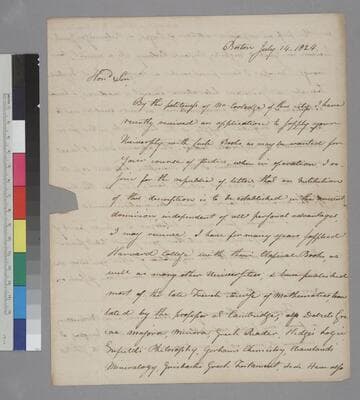 Boston July 14. 1824.
Hond Sir
By the politeness of Mr Coolidge of this city I have
recently received an application to supply your
University with such Books as may be wanted for
your course of studies, when in operation I re-
joice for the republic of letters that an Institution
of this description is to be established in the ancient
dominion independent of all personal advantages
I may receive. I have for many years supplied
Harvard College with their Classical Books, as
well as many other Universities, & have published
most of the late French course of Mathematics trans
lated by the professor at Cambridge, also Dalzels Gre
caa majora, minora, Greek Reader, Hedges Logic
Enfields Philosophy, Gorhams Chemistry, Cleavelands
Mineralogy, Griesbachs Greek Testament, &c &c. I have also